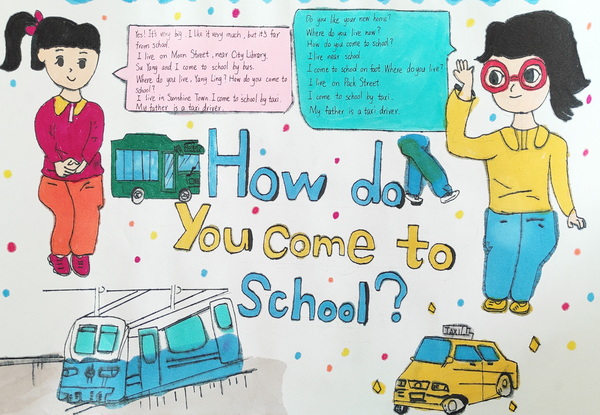 Yes! It's very big. I like it very much, but it's far
from school.
I live on Moon Street, near City Library.
Su Yang and I come to school by bus.
Where do you live, Yang Ling? How do you come to
school?
I live in Sunshine Town. I come to school by taxi.
My father is a taxi driver.
Do you like your new home?
Where do you live now?
How do you come to school?
I live near school.
I come to school on foot. Where do you live?
I live on Park Street.
I come to school by taxi.
My father is a taxi driver.
How do
You come to
School?
TAXI